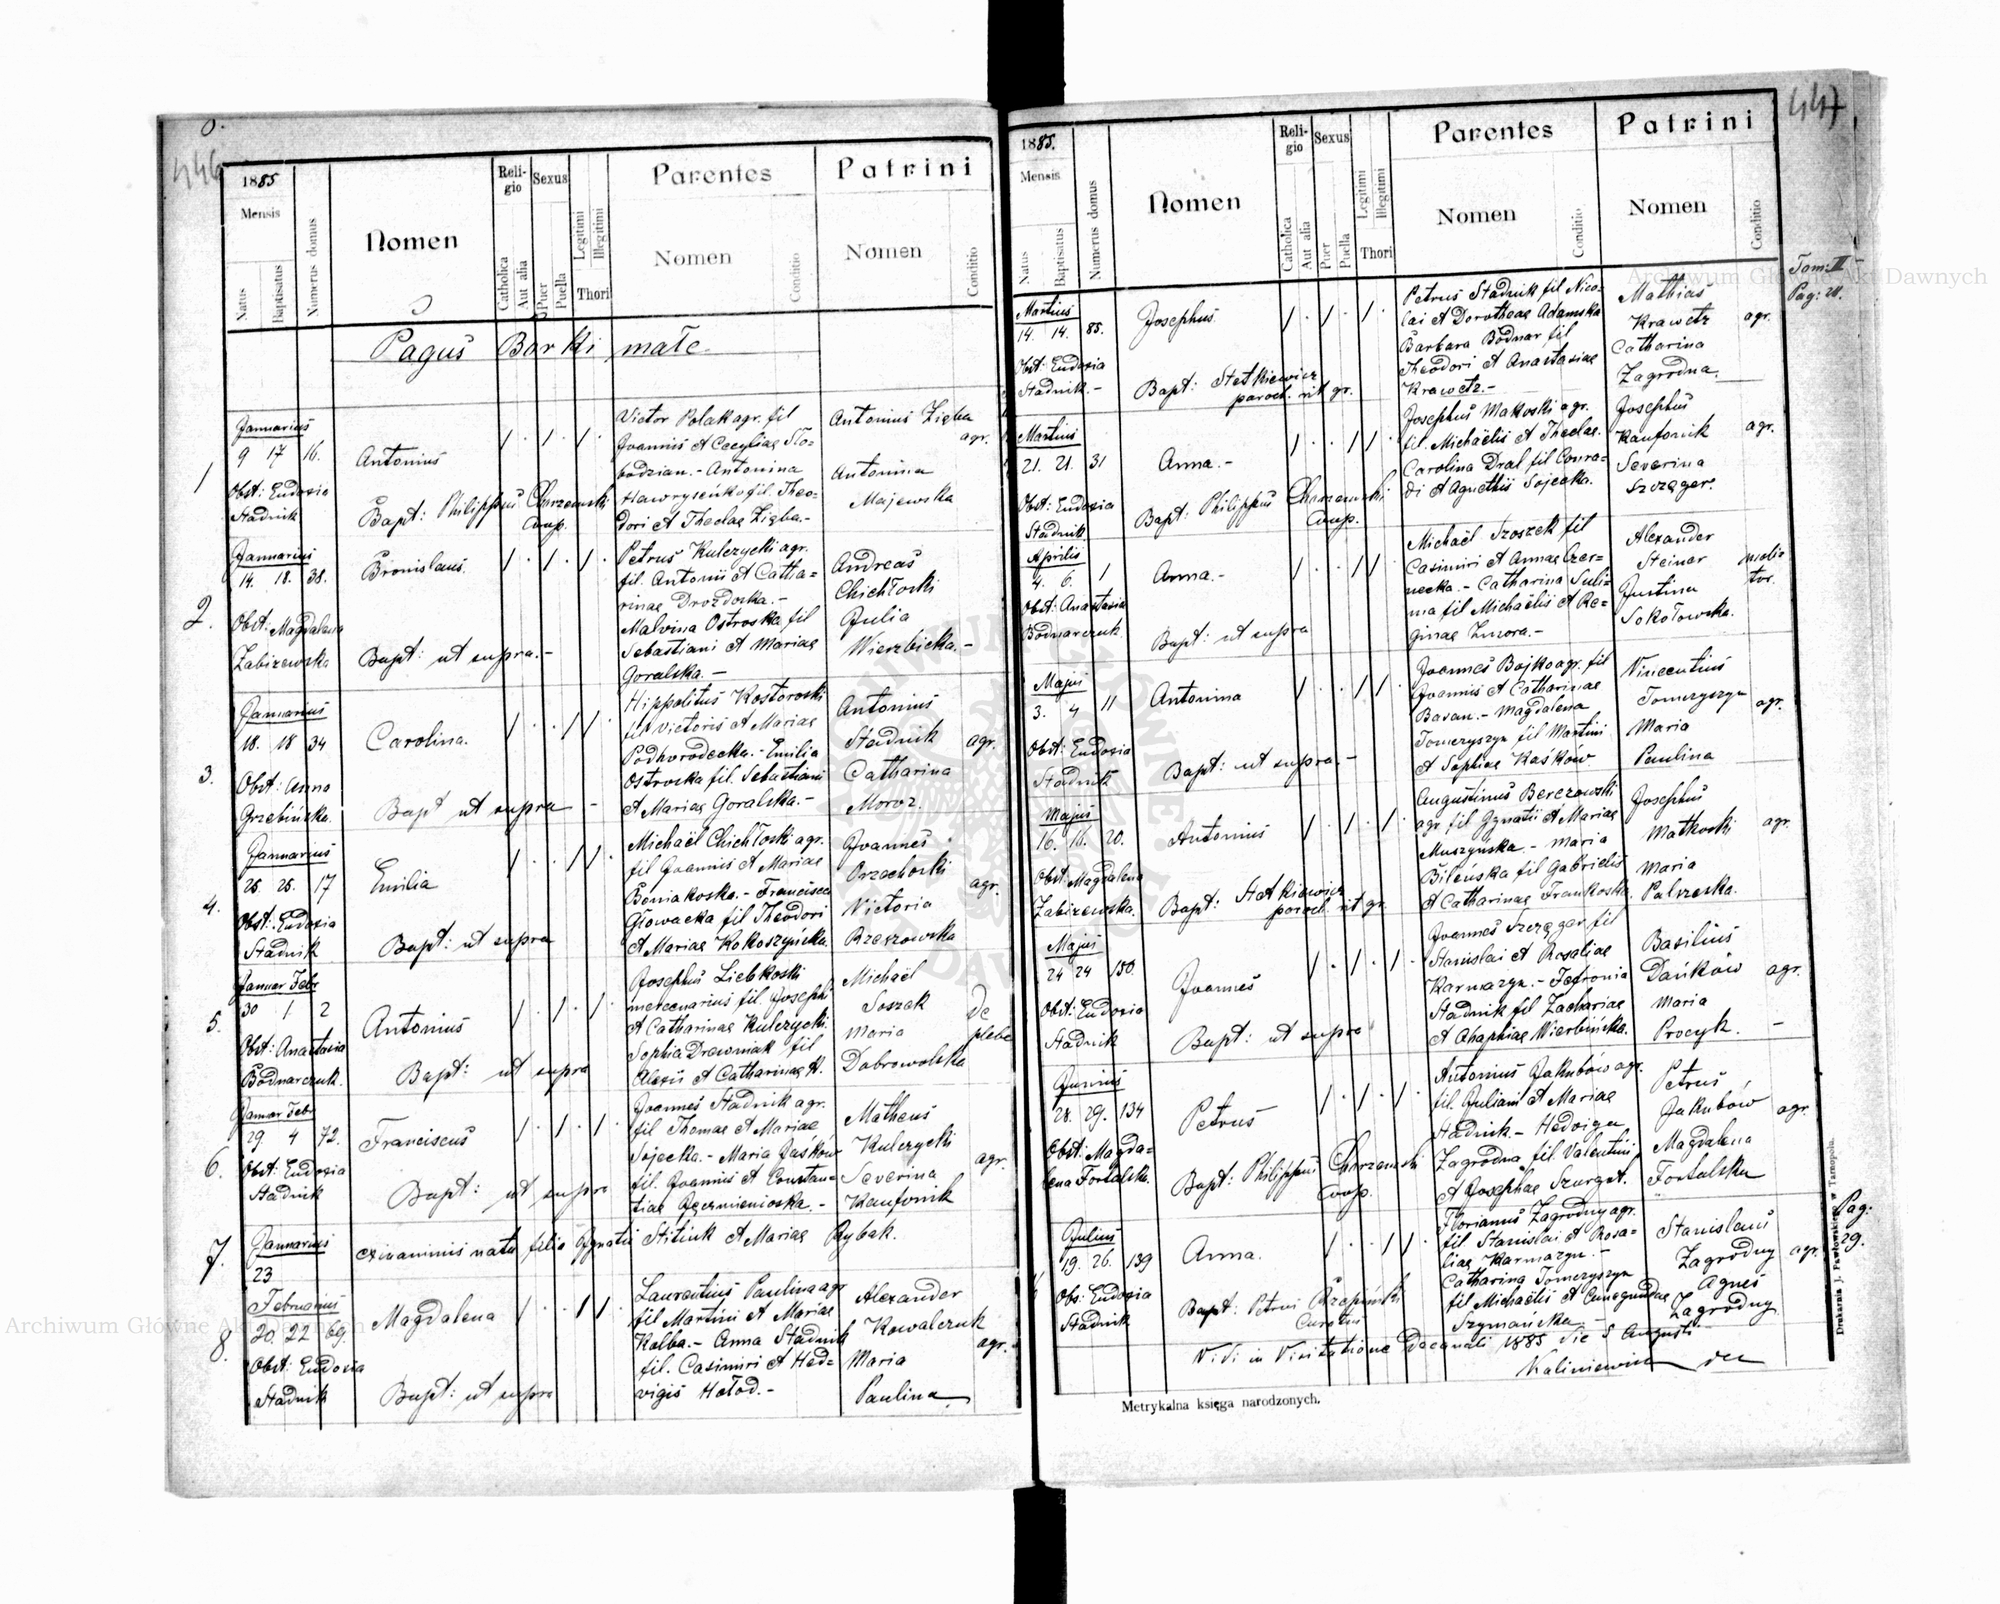 446
1885
Mensis
Natus
Baptisatus
Numerus domus
Nomen
Religio
Catholica
Aut alia
Sexus
Puer
Puella
Legitimi
Illegitimi
Thori
Parentes
Nomen
Conditio
Patrini
Nomen
Conditio
Pagus Borki małe
1
Januarius
9 17 16.
Obst: Eudoxia
Stadnik
Antonius
Bapt: Philippus Charzewski
Coop.
Victor Polak agr. fil
Joannis et Cecyliae Sło-
bodzian.- Antonina
Hawryseńko fil. Theo-
dori et Theclae Zięba-
Antonius Zięba
agr.
Antonina
Majewska
2.
Januarius
14. 18. 38.
Obst: Magdalena
Zabizewska
Bronislaus.
Bapt: ut supra.-
Petrus Kulczycki agr.
fil. Antonii et Catha=
rinae Drozdoska.-
Malvina Ostroska fil
Sebastiani et Mariae
Goralska.-
Andreas
Chichłoski
Julia
Wierzbicka.-
3.
Januarius
18. 18 34
Obst: Anna
Grzebińska.
Carolina.
Bapt ut supra -
Hippolitus Kostoroski
fil Victoris et Mariae
Podhorodecka.- Emilia
Ostroska fil. Sebastiani
et Mariae Goralska.-
Antonius
Stadnik agr.
Catharina
Moroz.
4.
Januarius
25. 25. 17
Obst: Eudoxia
Stadnik
Emilia
Bapt: ut supra
Michaël Chichłoski agr.
fil Joannis et Mariae
Boniakoska.- Francisca
Głowacka fil Theodori
et Mariae Kokoszyńska.
Joannes
Orzechoski
agr.
Victoria
Rzeszowska
5.
Januar Febr
30 1 2
Obst: Anastasia
Bodnarczuk.
Antonius
Bapt: ut supra
Josephus Liebkoski
mercenarius fil. Josephi
et Catharinae Kulczycki.
Sophia Drewniak fil
Alexii et Catharinae K.
Michaël
Soszek De
Maria plebe
Dobrowolska
6.
Januar Febr
29 4 72.
Obst: Eudoxia
Stadnik
Franciscus
Bapt: ut supra
Joannes Stadnik agr.
fil Thomae et Mariae
Sojecka.- Maria Jaśków
fil. Joannis et Constan-
tiae
Matheus
Kulczycki
agr.
Severina
Kaufonik
7.
Januarius
23
exinanimis natu filia Ignatii Stitiuk et Mariae Rybak.
8.
Februarius
20. 22 69.
Obst: Eudoxia
Stadnik
Magdalena
Bapt: ut supra
Laurentius Paulina agr
fil Martini et Mariae
Kolba.- Anna Stadnik
fil. Casimiri et Hed=
vigis Hołod.-
Alexander
Kowalczuk
agr.
Maria
Paulina
447
1885.
Mensis
Natus
Baptisatus
Numerus domus
Nomen
Religio
Catholica
Aut alia
Sexus
Puer
Puella
Legitimi
Illegitimi
Thori
Parentes
Nomen
Conditio
Patrini
Nomen
Conditio
Tom: II
Pag: 28.
Martius
14. 14. 85.
Obst: Eudoxia
Stadnik.-
Josephus
Bapt: Stetkiewicz
paroch. rit gr.
Petrus Stadnik fil Nico-
lai et Dorotheae Adamska
Barbara Bodnar fil
Theodori et Anastasiae
Krawetz.-
Mathias
Krawetz agr.
Catharina
Zagrodna.
Martius
21. 21. 31
Obst: Eudoxia
Stadnik
Anna.-
Bapt: Philippus Charzewski
Coop.
Josephus Makoski agr.
fil. Michaëlis et Theclae.
Carolina Dral fil Conra-
di et Agnethis Sojecka.
Josephus
Kaufonik agr.
Severina
Szczęger.
Aprilis
4. 6. 1
Obst: Anastasia
Bodnarczuk
Anna.-
Bapt: ut supra
Michaël Szoszek fil
Casimiri et Annae Czer-
necka.- Catharina Suli-
ma fil Michaëlis et Re-
ginae Znzora.-
Alexander
Steinar molitor.
Justina
Sokołowska.
Majus
3. 4 11
Obst: Eudoxia
Stadnik
Antonina
Bapt: ut supra.-
Joannes Bojko agr. fil
Joannis et Catharinae
Baran.- Magdalena
Tomczyszyn fil Martini
et Sophiae Kaśków
Vincentius
Tomczyszyn
agr.
Maria
Paulina
Majus
16. 16. 20.
Obst: Magdalena
Zabizewska.
Antonius
Bapt: Stetkiewicz
paroch. rit gr
Augustinus Berezowski
agr fil Ignatii et Mariae
Muszyńska - Maria
Bileńska fil Gabrielis
et Catharinae Frankoska
Josephus
Matkoski agr.
Maria
Palczeska.
Majus
24 24 150.
Obst: Eudoxia
Stadnik
Joannes
Bapt: ut supra
Joannes Szczęger fil
Stanislai et Rosaliae
Karmazyn.- Petronia
Stadnik fil Zachariae
et Ahaphiae Wierbińska.
Basilius
Dańków agr.
Maria
Procyk. -
Junius
28. 29. 134
Obst: Magda=
lena Fortalska.
Petrus
Bapt: Philippus Charzewski
Coop.
Antonius Jakubów agr.
fil. Juliani et Mariae
Stadnik.- Hedviga
Zagrodna fil. Valentini
et Josephae Szurgot.
Petrus
Jakubów
agr.
Magdalena
Fortalska
Julius
19. 26. 139
Obs: Eudoxia
Stadnik
Anna.
Bapt: Petrus Rzepiński
Curatus
Florianus Zagrodny agr.
fil Stanislai et Rosa=
liae Karmazyn.-
Catharina Tomczyszyn
fil Michaëlis et Cunegundae
Szymańska.-
Stanislaus
Zagrodny agr.
Agnes
Zagrodny
Pag:
29.
Vidi in Visitatione Decanali 1885 die 5 Augusti
Kaliniewicz
Metrykalna księga narodzonych.
Drukarnia J. Pawłowskiego w Tarnopolu.
Archiwum Główne Akt Dawnych
Archiwum Główne Akt Dawnych